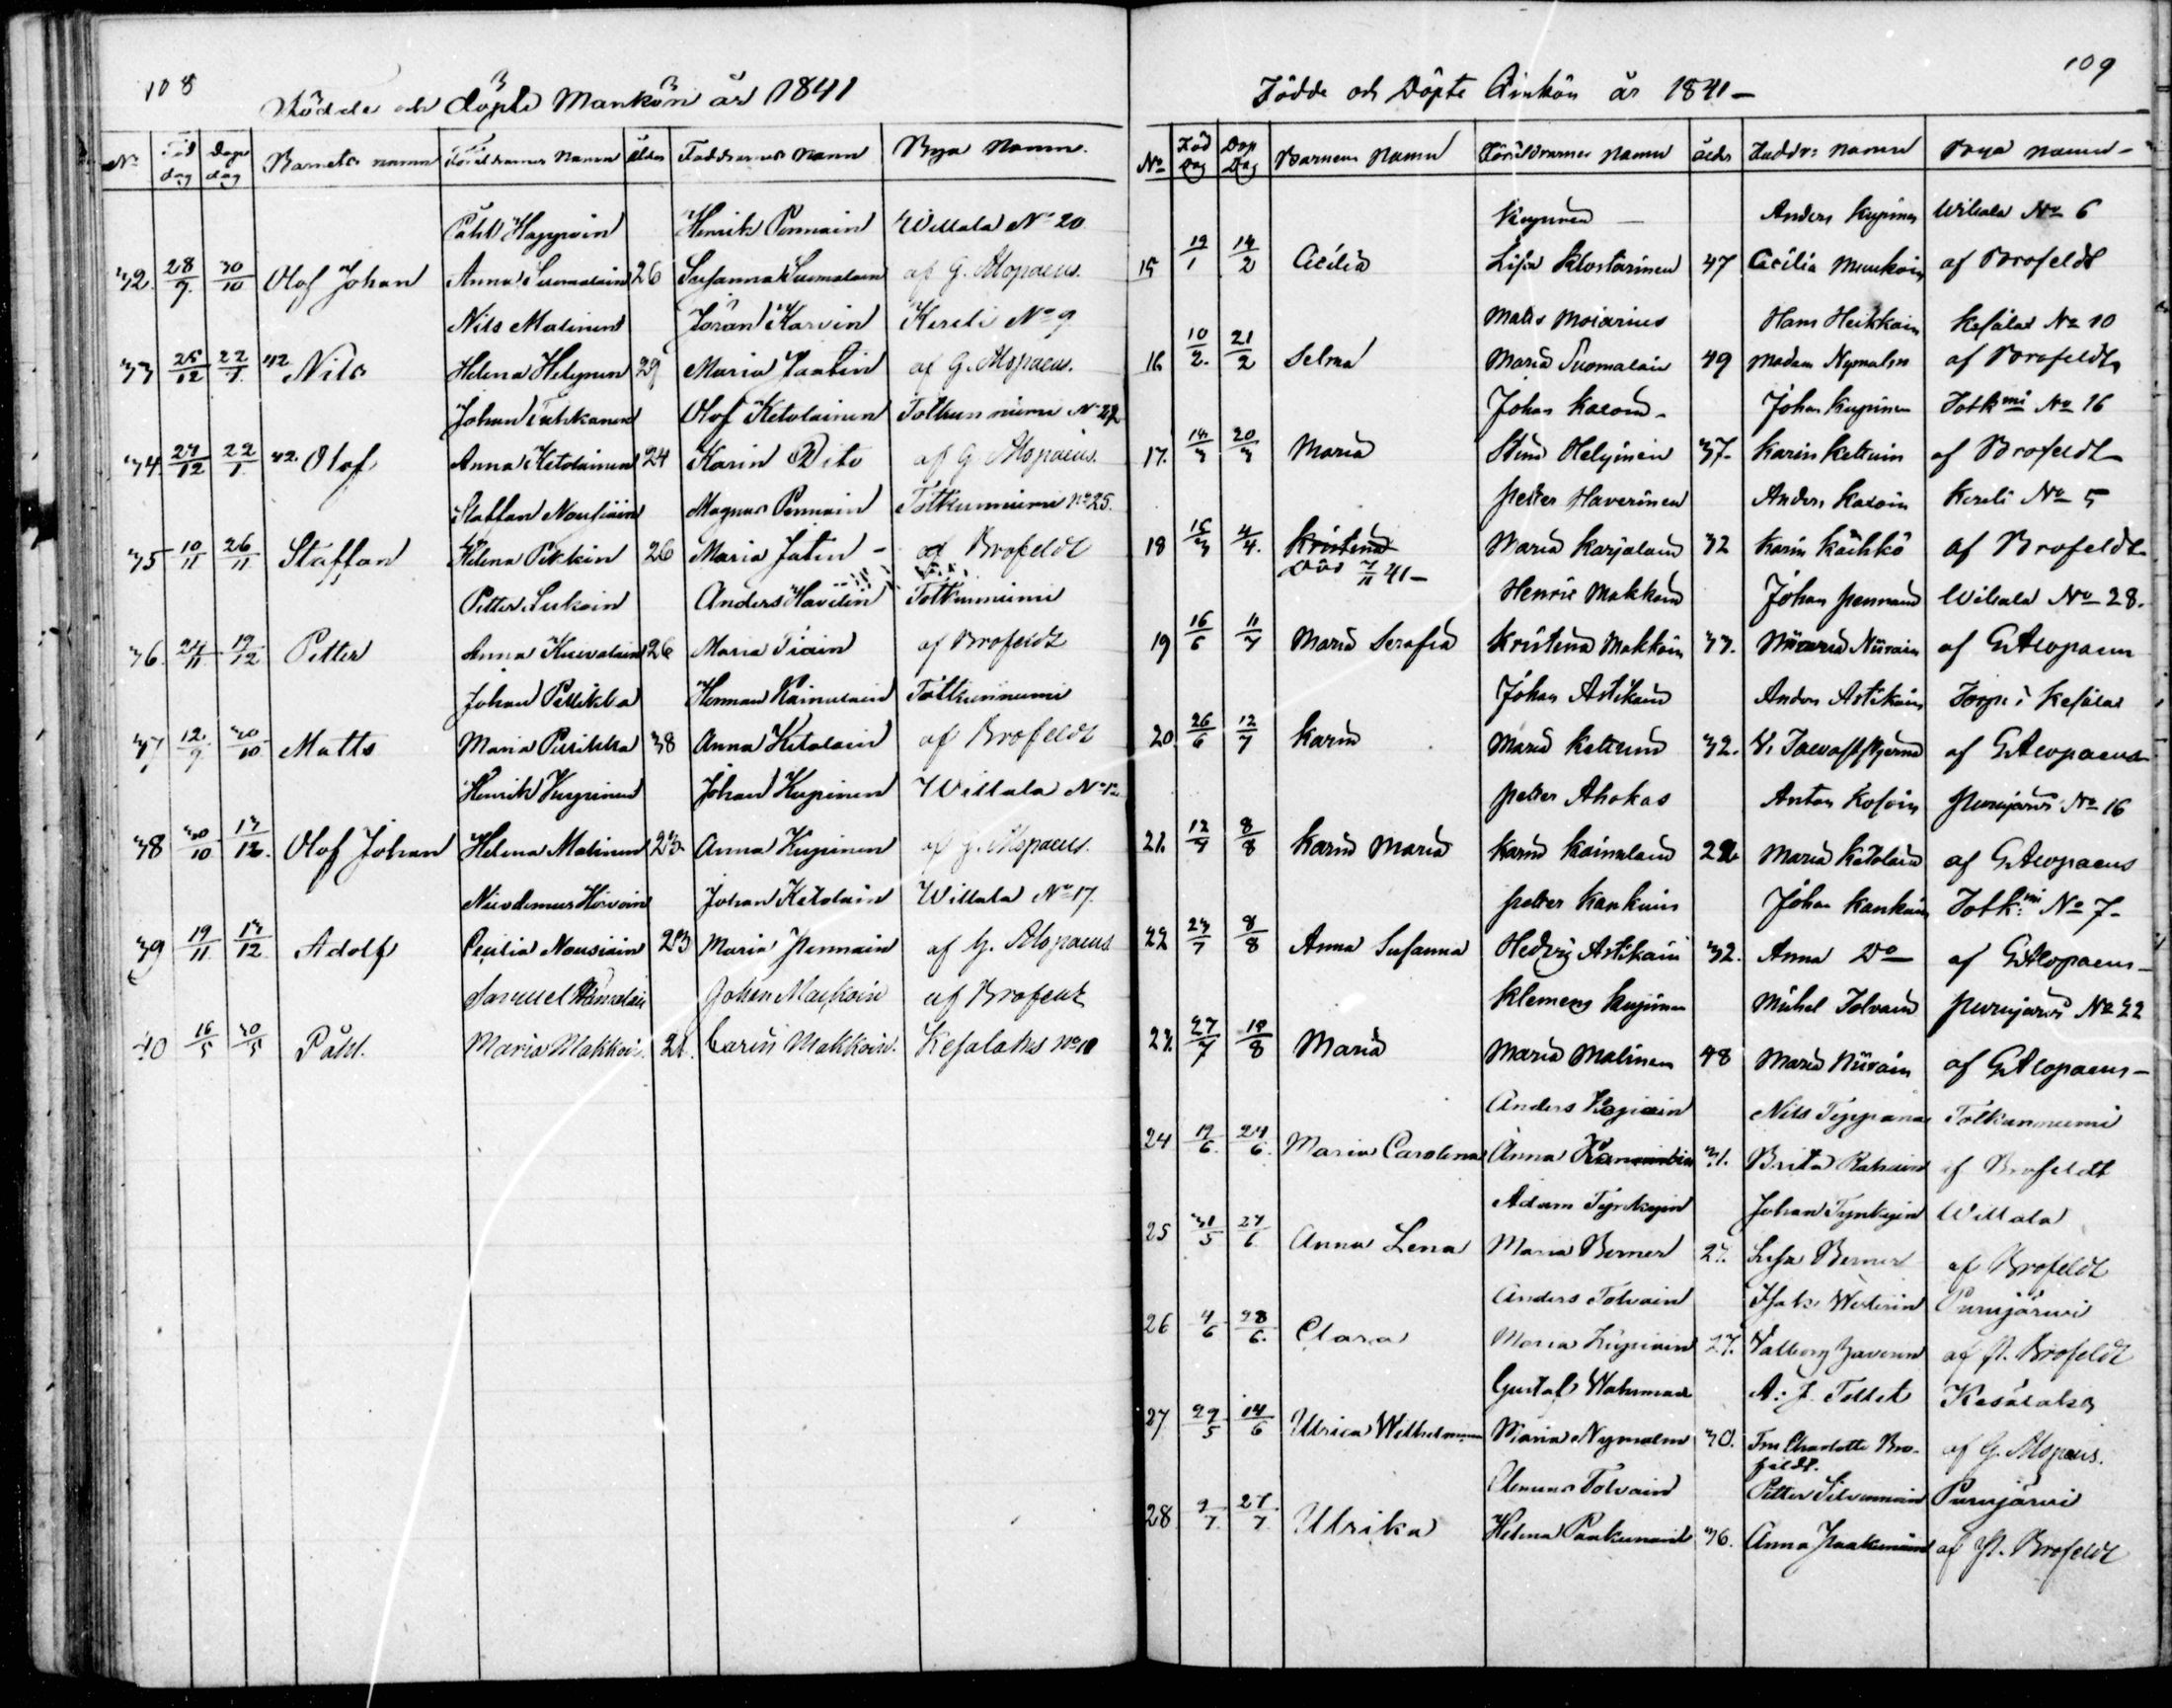 108
Födde och döpte Mankön år 1841
No Föd dag Dop dag Barnets namn Föräldrarnes Namn ålder Faddrarnes Namn Bya Namn.
Påhl Happoin Henrik Pennain Willala No 20
32. 28/9 30/10 Olof Johan Anna Suomalain 26 Susanna Suomalain af G. Alopaeus.
Nils Malinen Jöran Karvin Kereli No 9
33 25/12 22/1 42 Nils Helena Helynen 29 Maria Jaatin af G. Alopaeus.
Johan Olof Ketolainen Totkunniemi No 22
34. 27/12 22/1. 42. Olof Anna Ketolainen 24 Karin Dito af G Alopaeus.
Staffan Nousiain Magnus Pennain Totkunniemi No 25.
35 10/11 26/11 Staffan Helena Pekkin 26 Maria Jatin - af Brofeldt
Petter Anders Havelin Totkunniemi
36. 24/11 19/12 Petter Anna Kurvalain 26 Maria Piain af Brofeldt
Johan Pellikka Herman Kainulain Totkunniemi
37 12/9 30/10 Matts Maria Pellikka 38 Anna Ketolain af Brofeldt
Henrik Kupinen Johan Kupinen Willala No 12
38 30/10 13/12. Olof Johan Helena Malinen 23 Anna Kupinen af G. Alopaeus.
Nicodemus Hirvoin Johan Ketolain Willala No 17.
39 19/11 13/12 Adolf Cecilia Nousiain 23 Maria Pennain af G. Alopaeus
Samuel Johan Makkoin af Brofeldt
40 16/5 30/5 Påhl. Maria Makkoi. 21. Carin Makkoin. Kesalaks No 10
109
Födde och Döpte Qwinkön år 1841 -
No Föd Dag Dop Dag Barnens Namn Föräldrarnes Namn ålder Faddrs namn Bya namn -
Kupinen - Anders Kupinen Willala No 6
15 19/1 14/2 Cecilia Lisa Klostarinen 47 Cecilia Munkoin af Brofeldt
Matts Moiarius Hans Heikkain Kesälax No 10
16 10/2. 21/2 Selma Maria Suomalain 49 Madam Nymalm af Brofeldt
Johan Kosoin - Johan Kupinen Totkmi No 16
17. 14/3 20/3 Maria Stina Helyinen 37 - Karin Kettuin af Brofeldt
Petter Haverinen Anders Kosoin Kereli No 5
18 15/3 4/4. Kristena Maria Karjalain 32 Karin Käihkö af Brofeldt
Död 7/11 41 -
Henric Makkoin Johan Pennain Willala No 28.
19 16/6 11/7 Maria Serafia Kristena Makkoin 33. Maria Niirain af G Alopaeus
Johan Astikain Anders Astikain Torpr i Kesälax
20. 26/6 12/7 Karin Maria Kettuin 32. af G Alopaeus
Petter Ahokas Anton Kosoin Purujärvi No 16
21. 12/7 8/8 Karin Maria Karin Kainulain 22 Maria Ketolain af G Alopaeus
Petter Kankuin Johan Kankuin Totk:mi No 7 -
22 23/7 8/8 Anna Susanna Hedvig Astikain 32. Anna Do af G Alopaeus -
Klemens Kupinen Mikel Tolvain Purujärvi No 22
23. 27/7 10/8 Maria Maria Malinen 48 Maria Niirain af G Alopaeus -
Anders Nils Teppana Totkunniemi
24 19/6 24/6 Maria Carolina Anna 31. Brita af Brofeldt
Adam Tynkynen Johan Tynkynen Willala
25 31/5 27/6 Anna Lena Maria Berner 27. Lisa Berner af Brofeldt
Anders Tolvain Isak Westerin Purujärvi
26 4/6 28/6. Clara Maria 27. Valborg af A. Brofeldt
Gustaf Wahrman A: J. Tellet Kesälaks
27 29/5 14/6 Ulrica Wilhelmina Maria Nymalm 30. Fru Charlotta Brofeldt. af G. Alopaeus.
Clemens Tolvain Petter Silvennoin Purujärvi
28 9/7. 27/7 Ulrika Helena Paakunain 36. Anna Paakunain af A. Brofeldt